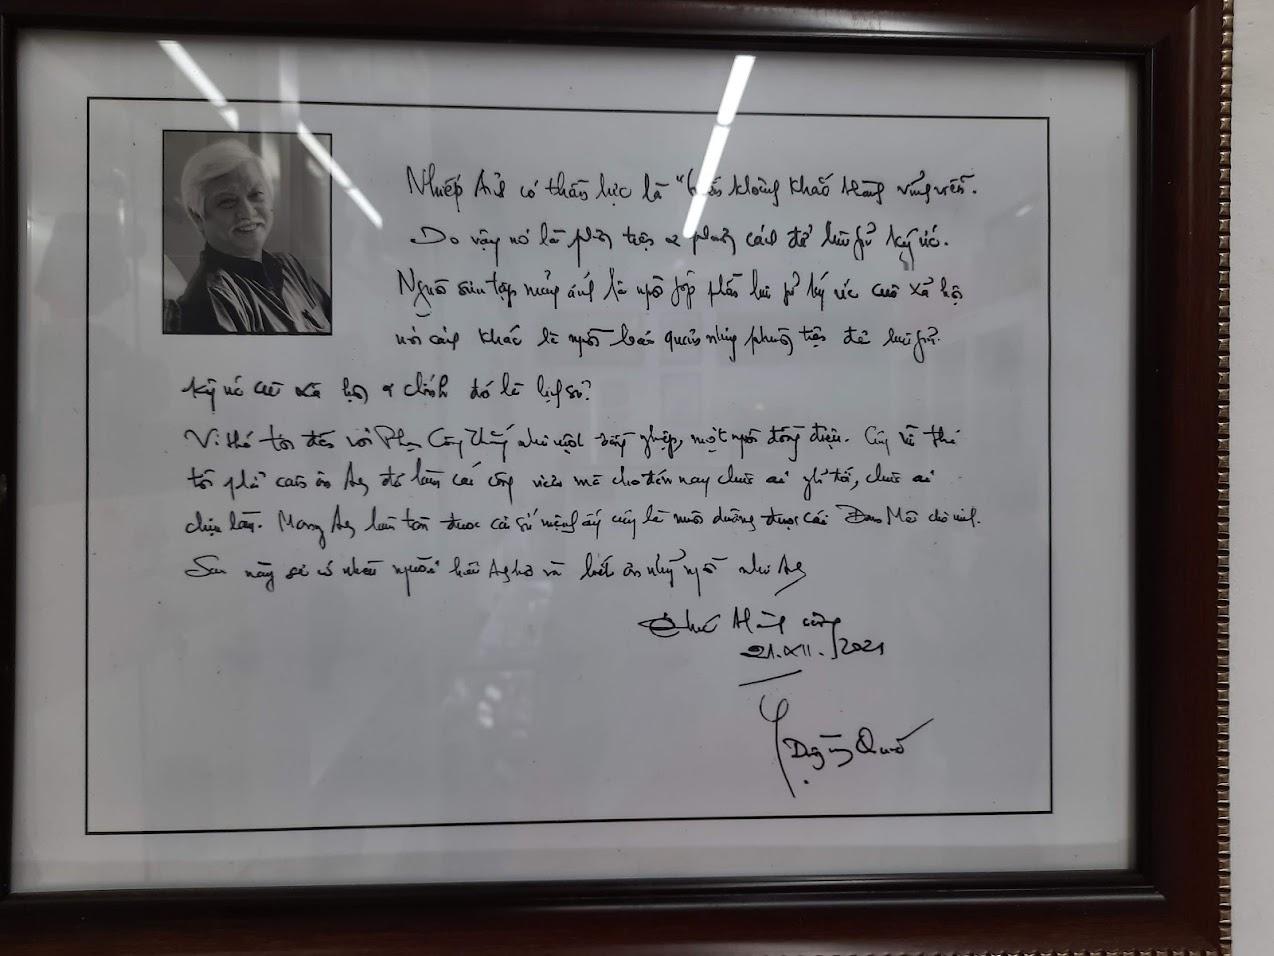 Nhiếp Ảnh có thần lực là "biến khoảng khắc thàng vĩng viễn.
Do vậy nó là phương tiện & phong cách để lưu giữ ký ức.
Người sưu tập máy ảnh là người góp phần lưu giữ ký ức của xã hội
nói cách khác là người bảo quản những phương tiện để lưu giữ.
Ký ức của xã hội & chính đó là lịch sử.
Vì thế tôi đến với Phạm Công Thắng như một đồng nghiệp, một người đồng điệu. Cũng vì thế
tôi phải cảm ơn Anh đã làm cái công việc mà cho đến nay chưa ai nghĩ tới, chưa ai
chịu làm. Mong Anh luôn được cả sứ mệnh ấy cũng là nuôi dưỡng được cái Đam Mê cho mình.
Sau này sẽ có nhiều người hiểu Anh hơn và biết ơn những người như Anh
Chúc thành công
21.XII.2021
Dương Quốc